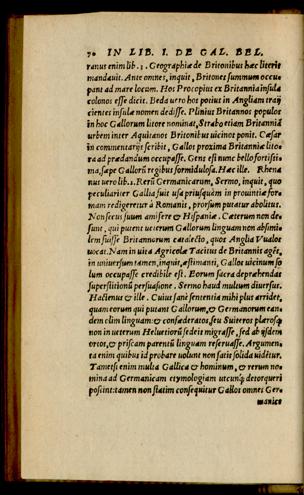 70 IN LIB. I. DE GAL. BEL.
ranus enim lib. 1. Geographiæ de Britonibus hæc literis
mandauit. Ante omnes, inquit, Britones summum occu-
pant ad mare locum. Hos Procopius ex Britannia insula
colonos esse dicit. Beda vero hos potius in Angliam traij
cientes insulæ nomen dedisse. Plinius Britannos populos
in hoc Gallorum litore nominat, Strabo etiam Britanniā
urbem inter Aquitanos Britonibus uicinos ponit. Cæsar
in commentarijs scribit, Gallos proxima Britanniæ lito-
ra ad prædandum occupasse. Gens est nunc bello fortissi-
ma, sæpe Gallorū regibus formidulosa. Hæc ille. Rhena
nus uero lib. 2. Rerū Germanicarum, Sermo, inquit, quo
peculiariter Gallia fuit usa priusquàm in prouintiæ for-
mam redigeretur à Romanis, prorsum putatur abolitus.
Non secus suum amisere & Hispaniæ. Cæterum non de-
sunt, qui putent ueterum Gallorum linguam non absimi-
lem fuisse Britannorum catalecto, quos Anglia Vualos
uocat. Nam in uita Agricolæ Tacitus de Britannis agēs,
in uniuersum tamen, inquit, æstimanti, Gallos uicinum so
lum occupasse credibile est. Eorum sacra deprehendas
superstitionū persuasione. Sermo haud multum diuersus.
Hactenus & ille. Cuius sanè sententia mihi plus arridet,
quam eorum qui putant Gallorum, & Germanorum ean-
dem olim linguam: & confœderatos, seu Suiceros plerosq;
non in ueterum Heluetiorū sedeis migrasse, sed ab ijsdem
ortos, & priscam parentū linguam reseruasse. Argumen-
ta enim quibus id probare uolunt non satis solida uidētur.
Tametsi enim multa Gallica & hominum, & rerum no-
mina ad Germanicam etymologiam utcunq; detorqueri
possint: tamen non statim consequitur Gallos omnes Ger-
manice